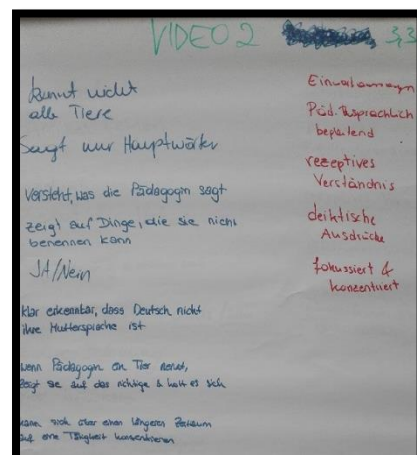 VIDEO 2 3,3
kennt nicht
alle Tiere
Sagt nur Hauptwörter
Versteht, was die Pädagogin sagt
zeigt auf Dinge, die sie nicht
benennen kann
JA/Nein
klar erkennbar, dass Deutsch nicht
ihre Muttersprache ist
wenn Pädagogin ein Tier nennt,
zeigt sie auf das richtige & holt es sich
kann sich über einen längeren Zeitraum
auf eine Tätigkeit konzentrieren
Päd. sprachlich
begleitend
rezeptives
Verständnis
deiktische
Ausdrücke
fokussiert &
konzentriert